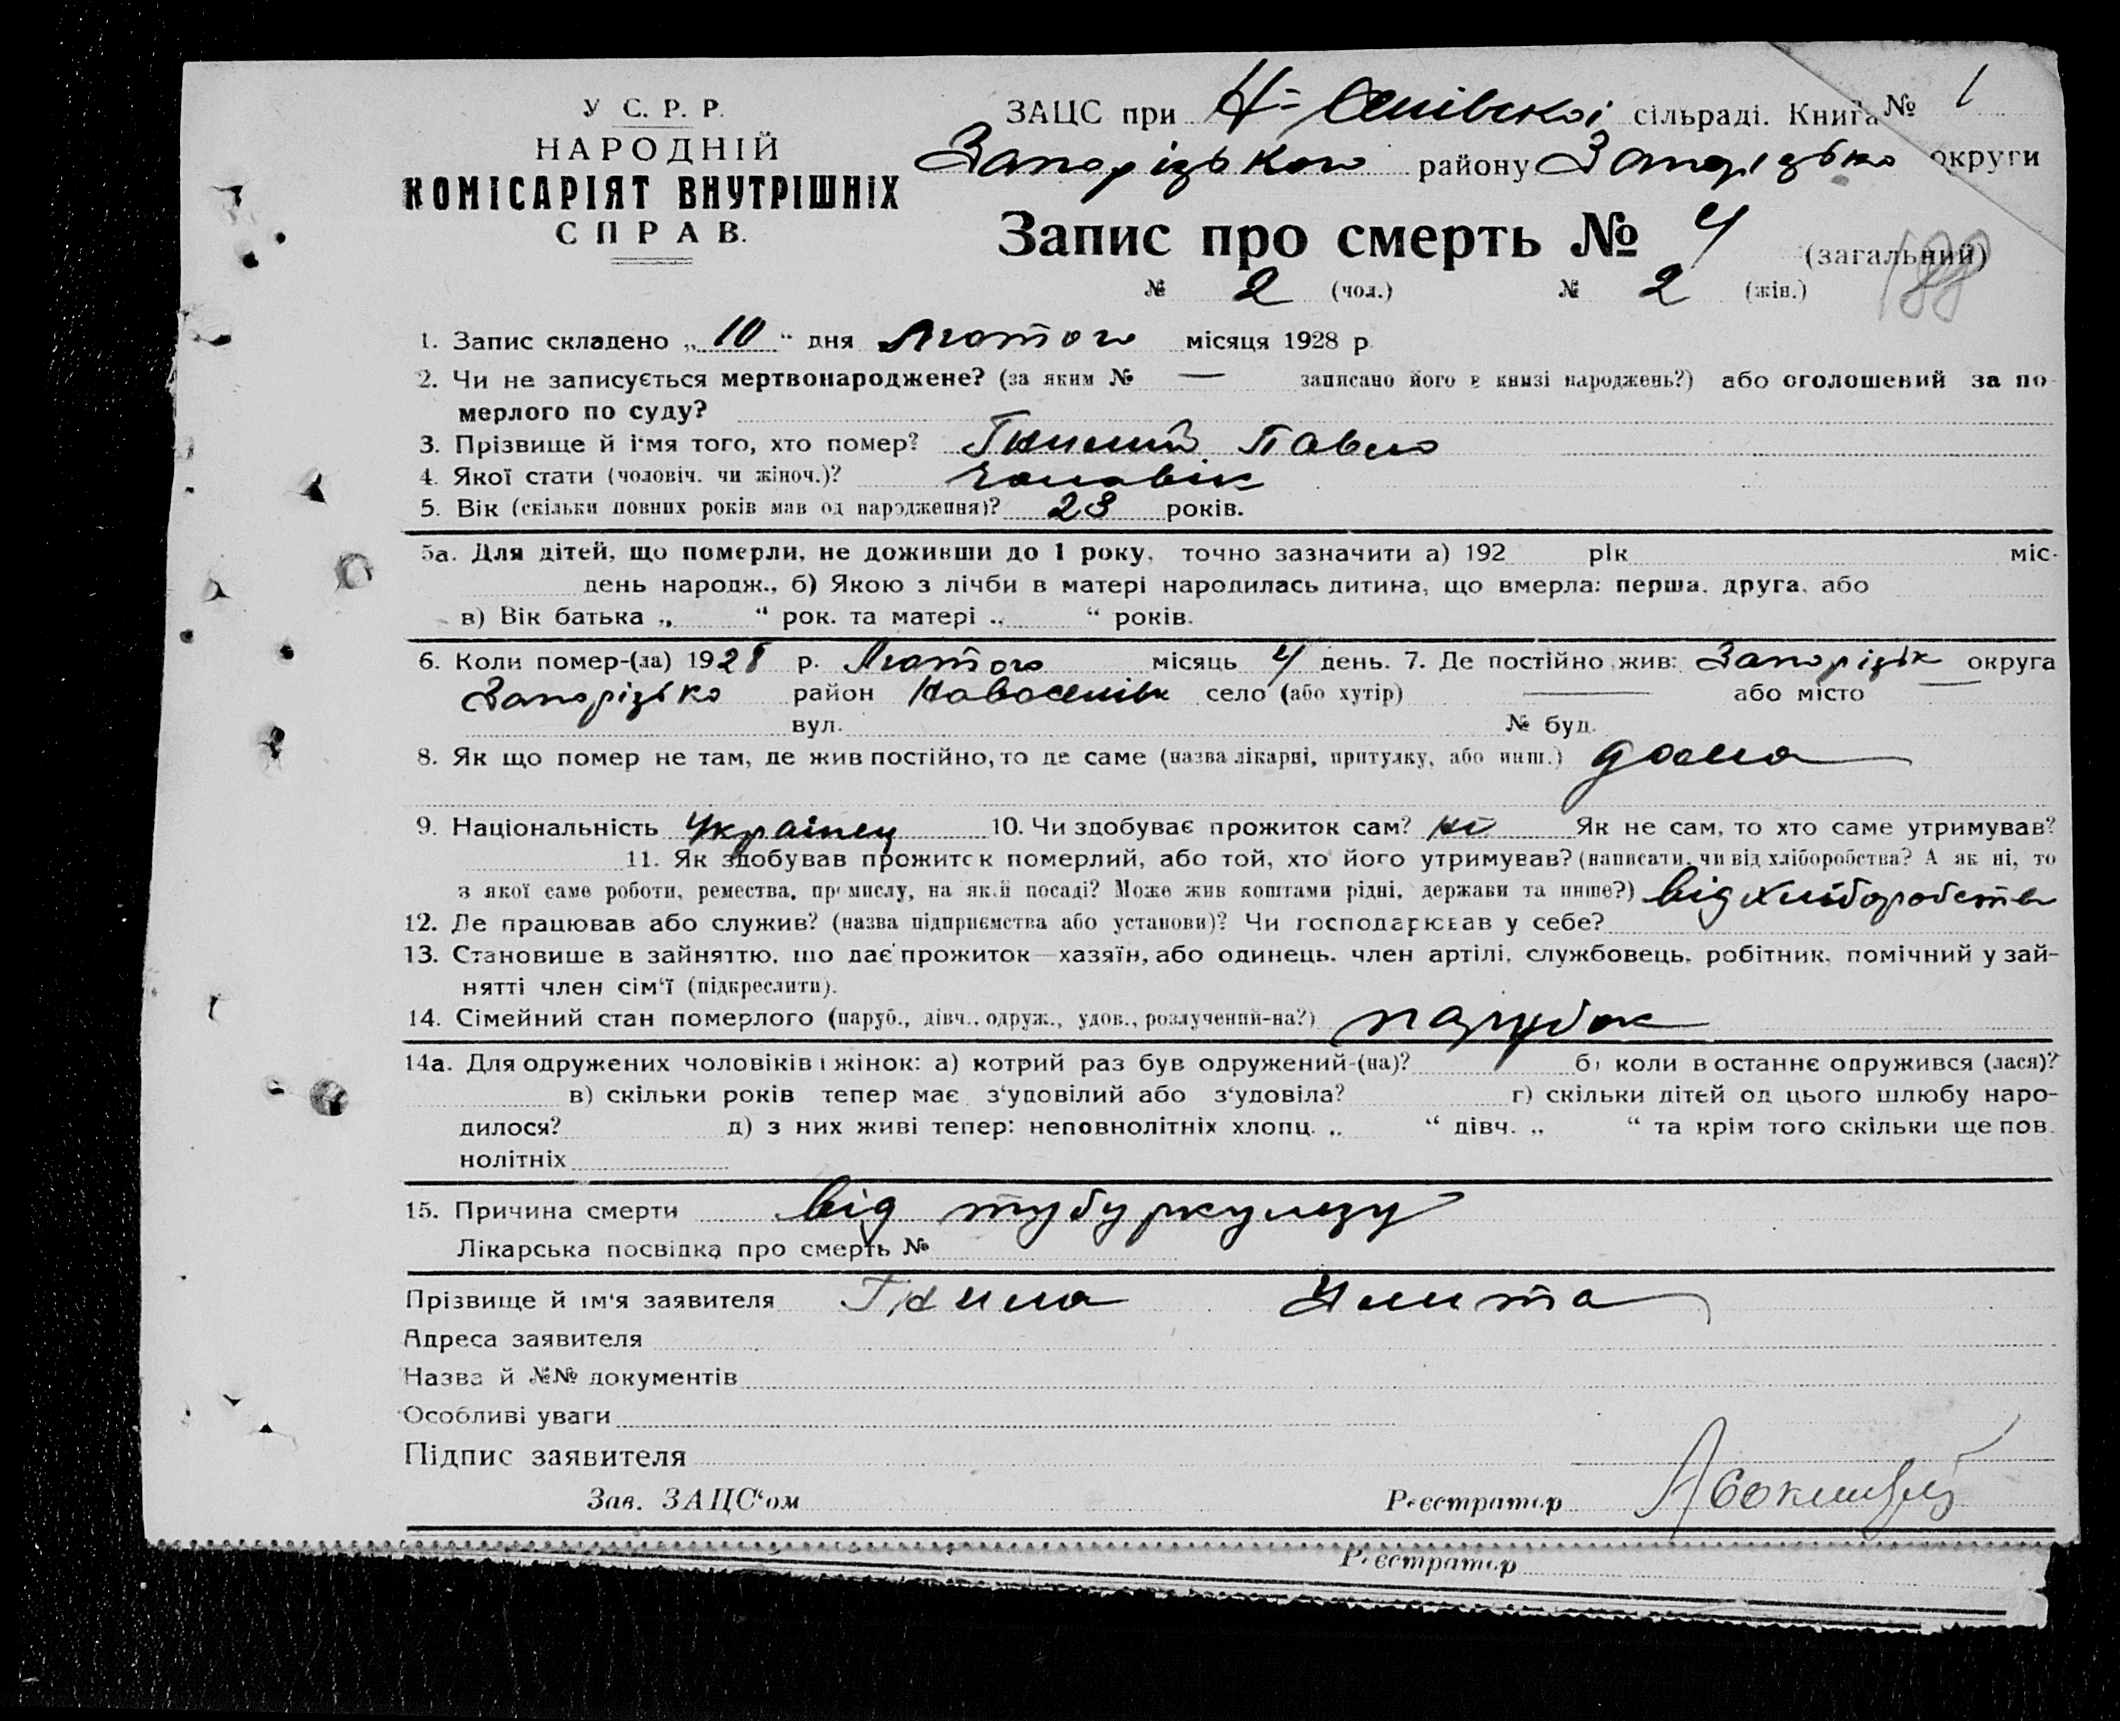 У С. Р. Р.
НАРОДНІЙ
КОМІСАРІЯТ ВНУТРІШНІХ
СПРАВ.
ЗАЦС при Н-Селівскоі сільраді. Книга № 1
Запорізького району Запорізько округи
Запис про смерть № 4 (загальний)
188
№ 2 (чол.) № 2 (жін.)
1. Запис складено „ 10 “ дня Лютого місяця 1928 р.
2. Чи не записується мертвонароджене? (за яким № — записано його в книзі народжень?) або оголошений за по-
мерлого по суду?
3. Прізвище й і‘мя того, хто помер? Гнилий Павло
4. Якої стати (чоловіч. чи жіноч.)? чоловік
5. Вік (скільки повних років мав од народження)? 23 років.
5а. Для дітей, що померли, не доживши до 1 року, точно зазначити а) 192 рік міс.
день народж., б) Якою з лічби в матері народилась дитина, що вмерла: перша, друга, або
в) Вік батька „ “ рок. та матері „ “ років.
6. Коли помер-(ла) 1928 р. Лютого місяць 4 день. 7. Де постійно жив: Запорізьк округа
Запорізько район Новоселівк село (або хутір) — або місто —
вул. № буд.
8. Як що помер не там, де жив постійно, то де саме (назва лікарні, притулку, або инш.) дома
9. Національність Українец 10. Чи здобуває прожиток сам? ні Як не сам, то хто саме утримував?
11. Як здобував прожиток померлий, або той, хто його утримував? (написати, чи від хліборобства? А як ні, то
з якої саме роботи, ремества, промислу, на якій посаді? Може жив коштами рідні, держави та инше?) від хліборобства
12. Де працював або служив? (назва підприємства або установи)? Чи господарював у себе?
13. Становище в зайняттю, що дає прожиток—хазяїн, або одинець, член артілі, службовець, робітник, помічний у зай-
нятті член сім‘ї (підкреслити).
14. Сімейний стан померлого (паруб., дівч., одруж., удов., розлучений-на?) парубок
14а. Для одружених чоловіків і жінок: а) котрий раз був одружений-(на)? б) коли в останнє одружився (лася)?
в) скільки років тепер має з‘удовілий або з‘удовіла? г) скільки дітей од цього шлюбу наро-
дилося? д) з них живі тепер: неповнолітніх хлопц. „ “ дівч. „ “ та крім того скільки ще пов.
нолітніх
15. Причина смерти від тубуркулезу
Лікарська посвідка про смерть №
Прізвище й ім‘я заявителя Гнила Улита
Адреса заявителя
Назва й №№ документів
Особливі уваги
Підпис заявителя
Зав. ЗАЦС‘ом Реєстратор
Реєстратор